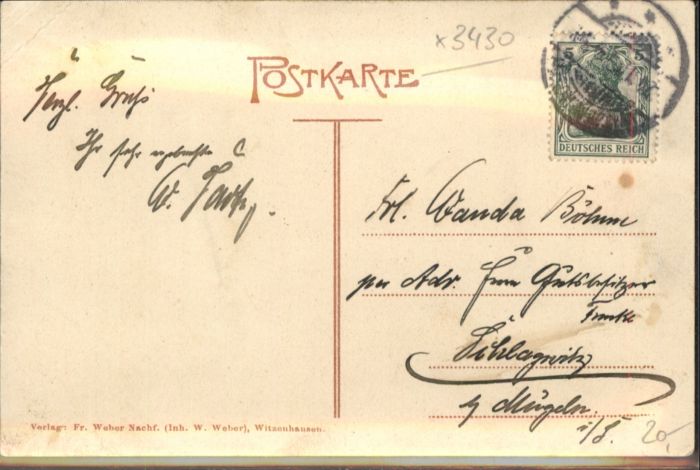 x3430
POSTKARTE
5 5
DEUTSCHES REICH
Herzl. Gruß
Ihr sehr ergebenster
W.
Frl. Wanda Böhme
per Adr. Frau Gutsbesitzer
Funke
Schlagwitz
b/ Mügeln.
i/S.
Verlag: Fr. Weber Nachf. (Inh. W. Weber), Witzenhausen.
20,